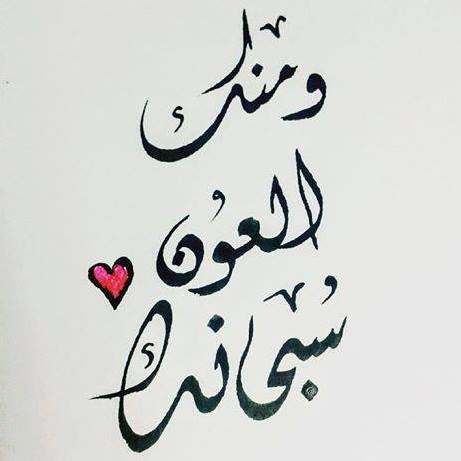 ومنك
العون
سبحانك